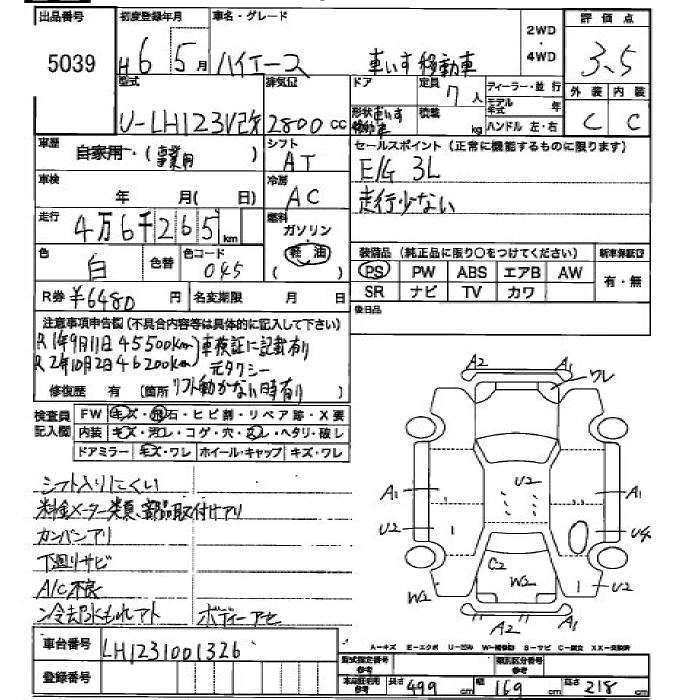 出品番号
5039
初度登録年月
H6 5月
車名・グレード
ハイエース
車いす移動車
2WD
・
4WD
評価点
3.5
型式
U-LH123V改
排気量
2800cc
ドア
定員
7人
ディーラー・並行
外装 内装
C C
形状 車いす移動車
積載
kg
モデル年式 年
ハンドル 左・右
車歴
自家用・(事業用)
シフト
AT
セールスポイント (正常に機能するものに限ります)
E/G 3L
走行少ない
車検
年 月( 日)
冷房
AC
走行
4万6千265km
燃料
ガソリン
軽油
( )
色
白
色替
色コード
045
装備品 (純正品に限り○をつけてください)
新車保証書
PS PW ABS エアB AW
有・無
SR ナビ TV カワ
R券 ¥6480円
名変期限 月 日
後日品
注意事項申告欄(不具合内容等は具体的に記入して下さい)
R1年9月11日 45500km
車検証に記載有り
R2年10月2日 46200km
元タクシー
修復歴 有 [箇所 リフト動かない時有り ]
検査員記入欄
FW キズ・飛石・ヒビ割・リペア跡・X要
内装 キズ・汚レ・コゲ・穴・ヌレ・ヘタリ・破レ
ドアミラー キズ・ワレ ホイール・キャップ キズ・ワレ
シフト入りにくい
料金メーター類、部品取付けアリ
カンバンアリ
下廻りサビ
A/C不良
冷却水もれアト ボディーアセ
A2 A1 ワレ
A1 U2 A1
U2 U4
C2 W2
W2 U2
A2 A1
A-キズ E-エクボ U-凹み W-補修跡 S-サビ C-腐食 XX-交換済
車台番号
LH1231001326
登録番号
型式指定番号 参考
類別区分番号 参考
車検証有効参考
長さ 499cm
幅 169cm
高さ 218cm